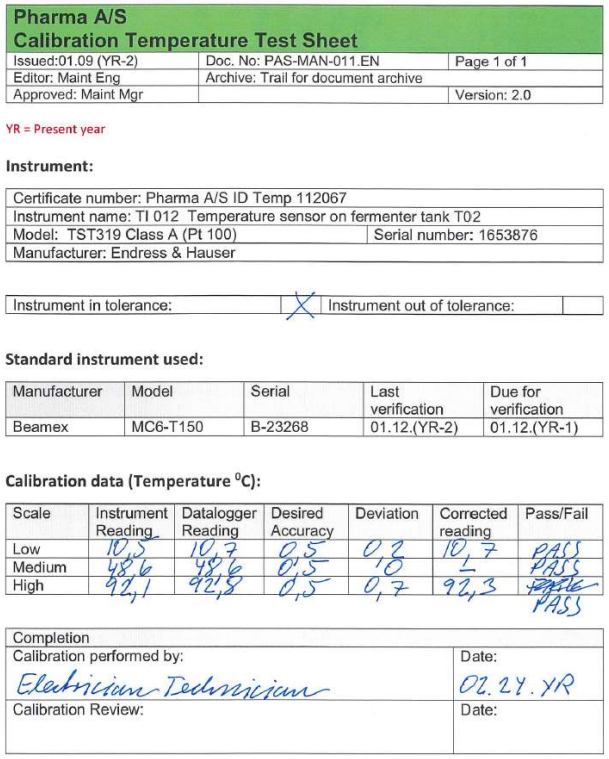 Pharma A/S
Calibration Temperature Test Sheet
Issued:01.09 (YR-2) Doc. No: PAS-MAN-011.EN Page 1 of 1
Editor: Maint Eng Archive: Trail for document archive
Approved: Maint Mgr Version: 2.0
YR = Present year
Instrument:
Certificate number: Pharma A/S ID Temp 112067
Instrument name: TI 012 Temperature sensor on fermenter tank T02
Model: TST319 Class A (Pt 100) Serial number: 1653876
Manufacturer: Endress & Hauser
Instrument in tolerance: X Instrument out of tolerance:
Standard instrument used:
Manufacturer Model Serial Last Due for
verification verification
Beamex MC6-T150 B-23268 01.12.(YR-2) 01.12.(YR-1)
Calibration data (Temperature ⁰C):
Scale Instrument Datalogger Desired Deviation Corrected Pass/Fail
Reading Reading Accuracy reading
Low 10,5 10,7 0,5 0,2 10,7 PASS
Medium 48,6 48,6 0,5 0 - PASS
High 92,1 92,8 0,5 0,7 92,3
PASS
Completion
Calibration performed by: Date:
Electrician Technician 02.24.YR
Calibration Review: Date: